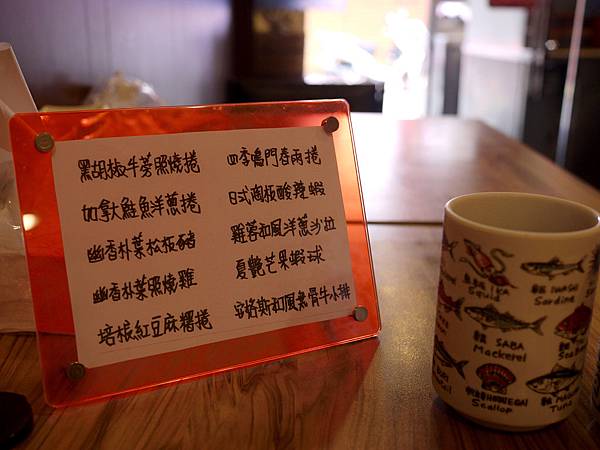 黑胡椒牛蒡照燒捲
加拿鮭魚洋蔥捲
幽香朴葉松板豬
幽香朴葉照燒雞
培根紅豆麻糬捲
四季鳴門春雨捲
日式陶板酸辣蝦
雞蓉和風洋蔥沙拉
夏艷芒果蝦球
安格斯和風無骨牛小排
IKA
Squid
IWASHI
Sardine
SABA
Mackerel
Scallop
Tuna